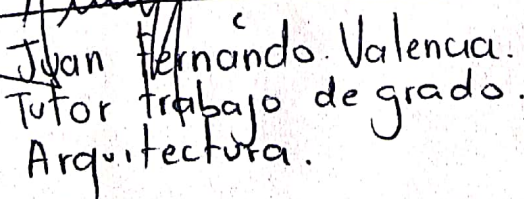 Juan Hernando Valencia.
Tutor trabajo de grado.
Arquitectura.